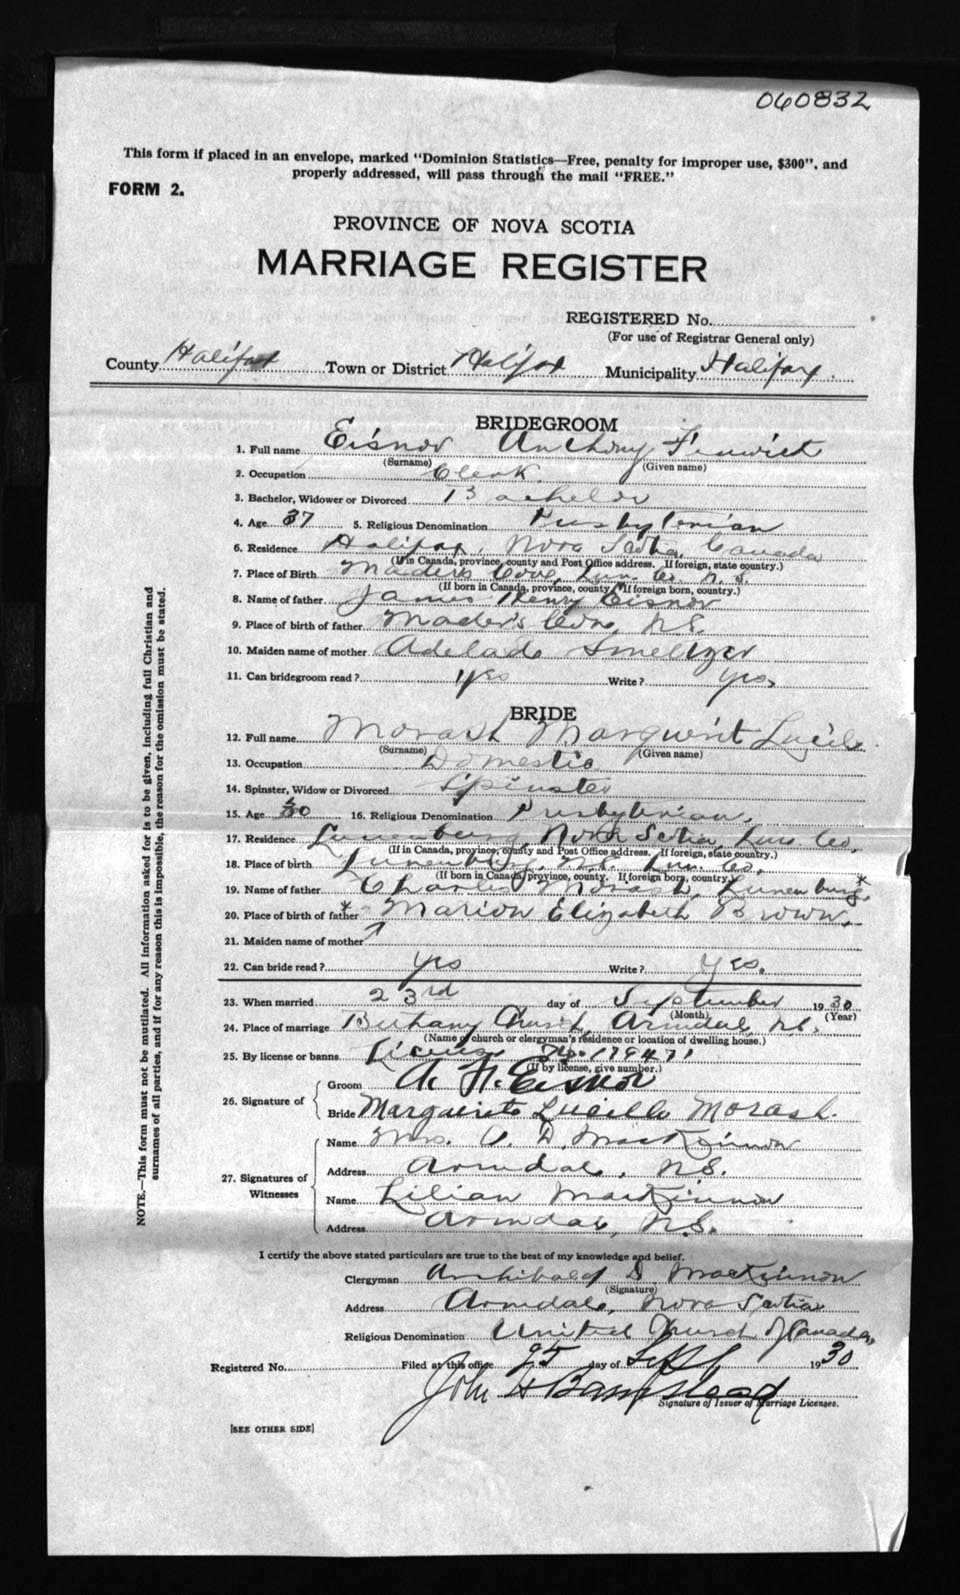 060832
This form if placed in an envelope, marked "Dominion Statistics—Free, penalty for improper use, $300", and
properly addressed, will pass through the mail "FREE."
FORM 2.
PROVINCE OF NOVA SCOTIA
MARRIAGE REGISTER
REGISTERED No.
(For use of Registrar General only)
County Halifax Town or District Halifax Municipality Halifax.
BRIDEGROOM
1. Full name Eisnor Anthony Finwick
(Surname) (Given name)
2. Occupation Clerk.
3. Bachelor, Widower or Divorced Bachelor
4. Age 37 5. Religious Denomination Presbyterian
6. Residence Halifax, Nova Scotia, Canada
(If in Canada, province, county and Post Office address. If foreign, state country.)
7. Place of Birth Maider's Cove, Lun. Co. N.S.
(If born in Canada, province, county. If foreign born, country.)
8. Name of father James Henry Eisnor
9. Place of birth of father Mader's Cove, N.S.
10. Maiden name of mother Adelade Smeltzer
11. Can bridegroom read? yes Write? yes,
BRIDE
12. Full name Morash Marguerit Lucile
(Surname) (Given name)
13. Occupation Domestic
14. Spinster, Widow or Divorced Spinster
15. Age 30 16. Religious Denomination Presbyterian.
17. Residence Lunenburg, Nova Scotia, Lun. Co.
(If in Canada, province, county and Post Office address. If foreign, state country.)
18. Place of birth Lunenburg, N.S. Lun. Co.
(If born in Canada, province, county. If foreign born, country.)
19. Name of father Charles Morash, Lunenburg*
20. Place of birth of father * Marion Elizabeth Brown.
21. Maiden name of mother
22. Can bride read? yes Write? yes.
23. When married 23rd day of September 1930
(Month) (Year)
24. Place of marriage Bethany Church, Armdale, N.S.
(Name of church or clergyman's residence or location of dwelling house.)
25. By license or banns License No. 179471
(If by license, give number.)
26. Signature of
Groom A. F. Eisnor
Bride Marguerite Lucille Morash.
27. Signatures of Witnesses
Name Mrs. A. D. MacKinnon
Address Armdale, N.S.
Name Lilian MacKinnon
Address Armdale, N.S.
I certify the above stated particulars are true to the best of my knowledge and belief.
Clergyman Archibald D. MacKinnon
(Signature)
Address Armdale, Nova Scotia
Religious Denomination United Church of Canada,
Registered No. Filed at this office 25 day of Sept 1930
John H Barnstead
Signature of Issuer of Marriage Licenses.
[SEE OTHER SIDE]
NOTE.—This form must not be mutilated. All information asked for is to be given, including full Christian and
surnames of all parties, and if for any reason this is impossible, the reason for the omission must be stated.